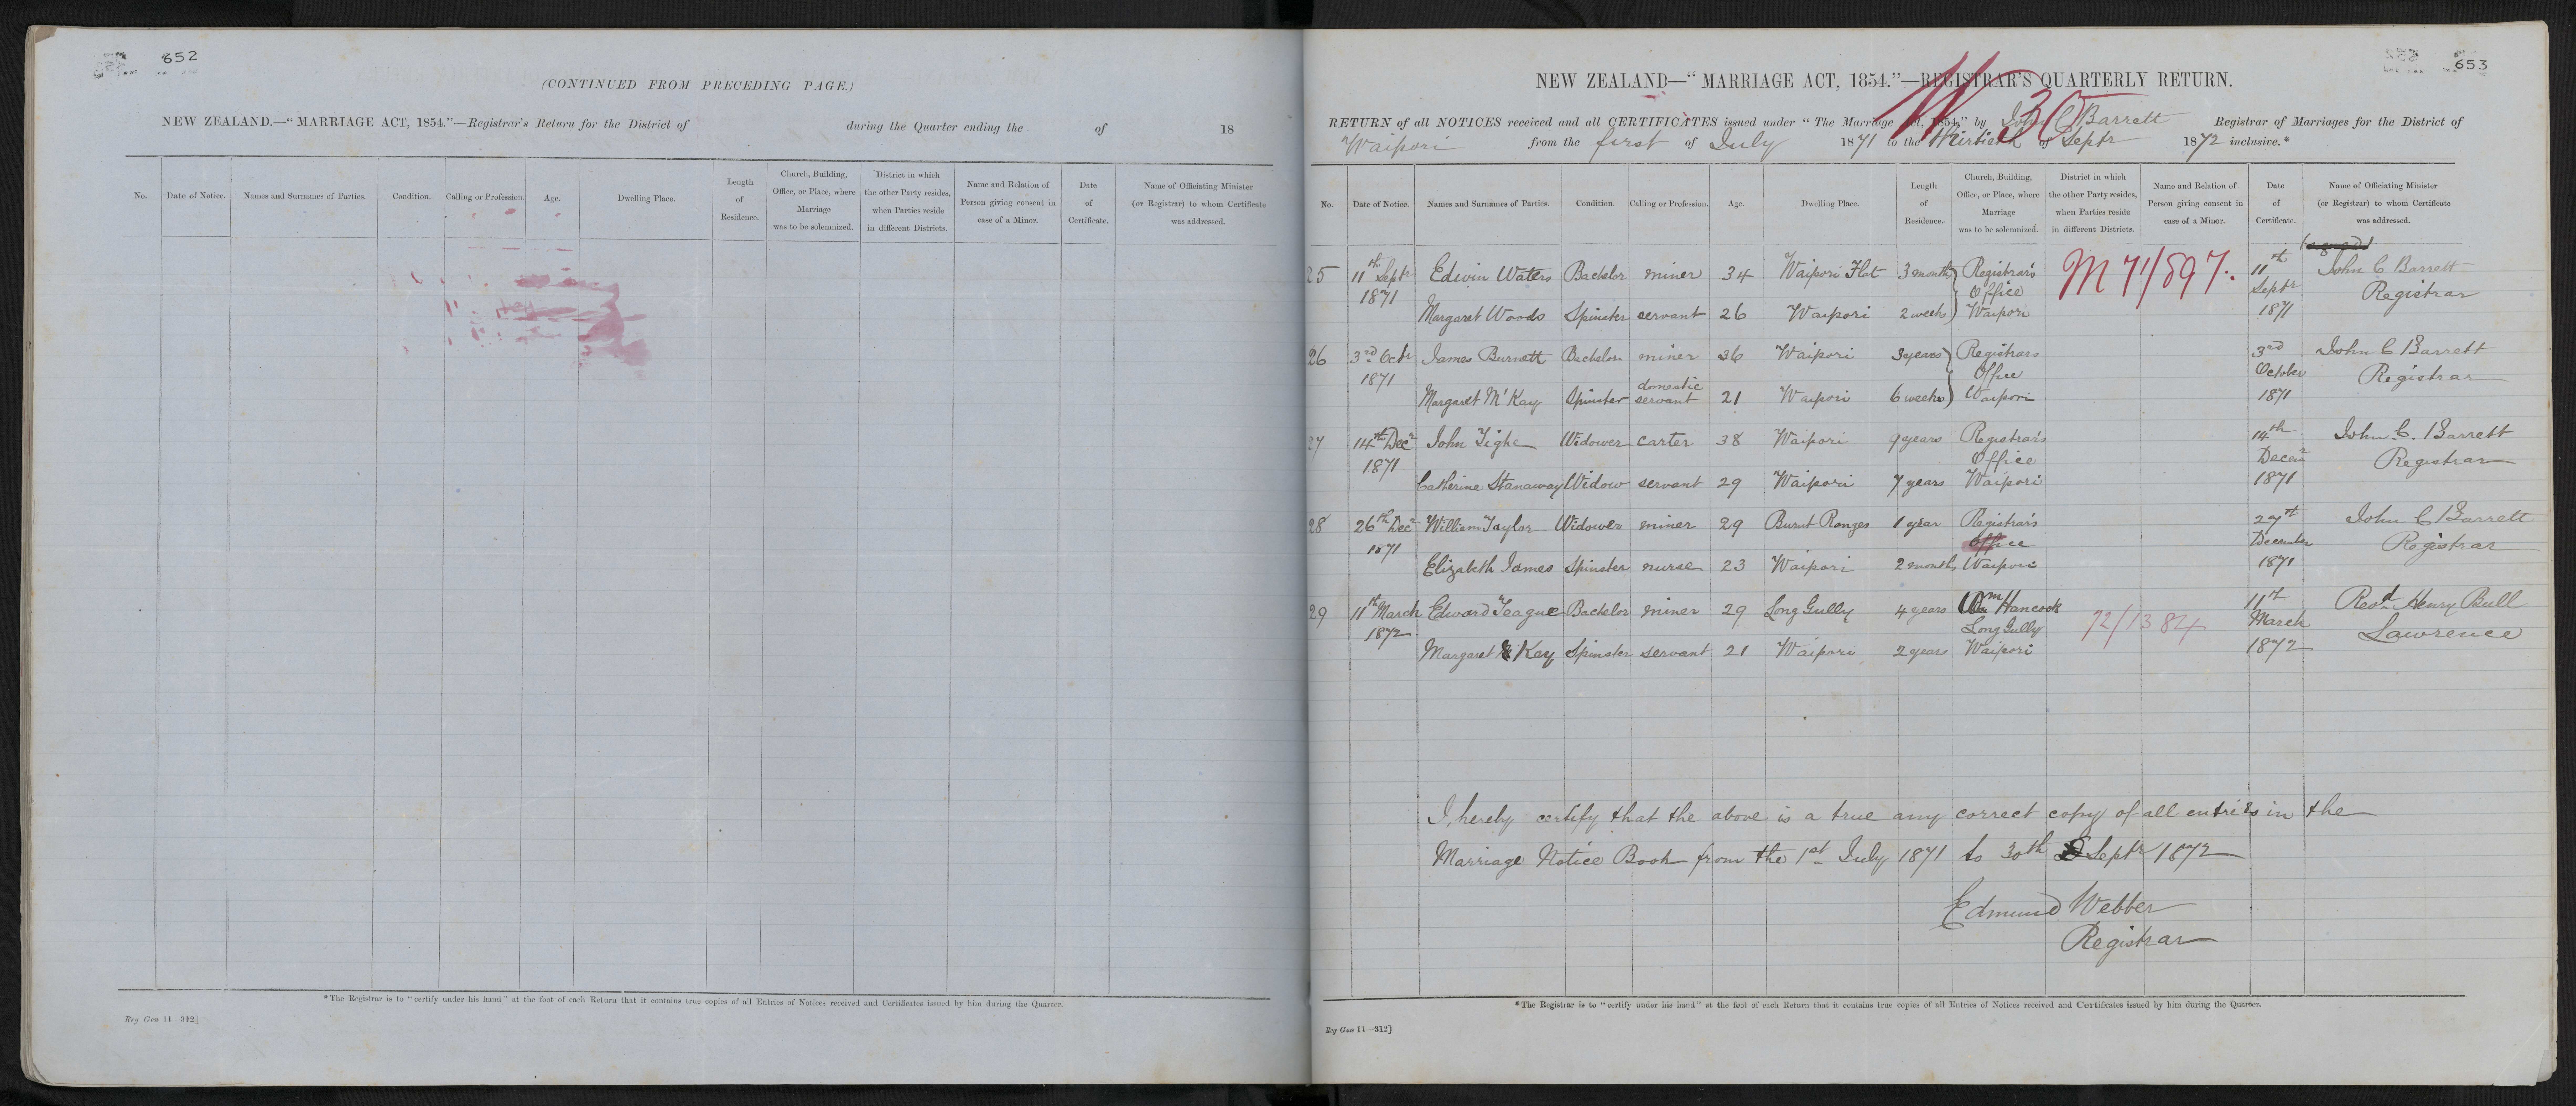 652
(CONTINUED FROM PRECEDING PAGE.)
NEW ZEALAND.—"MARRIAGE ACT, 1854."—Registrar's Return for the District of during the Quarter ending the of 18
No. Date of Notice. Names and Surnames of Parties. Condition. Calling or Profession. Age. Dwelling Place. Length of Residence. Church, Building, Office, or Place, where Marriage was to be solemnized. District in which the other Party resides, when Parties reside in different Districts. Name and Relation of Person giving consent in case of a Minor. Date of Certificate. Name of Officiating Minister (or Registrar) to whom Certificate was addressed.
*The Registrar is to "certify under his hand" at the foot of each Return that it contains true copies of all Entries of Notices received and Certificates issued by him during the Quarter.
Reg Gen 11—312]
653
NEW ZEALAND—"MARRIAGE ACT, 1854."—REGISTRAR'S QUARTERLY RETURN.
30
RETURN of all NOTICES received and all CERTIFICATES issued under "The Marriage Act, 1854," by John C Barrett Registrar of Marriages for the District of
Waipori from the first of July 1871 to the thirtieth of Septr 1872 inclusive.*
No. Date of Notice. Names and Surnames of Parties. Condition. Calling or Profession. Age. Dwelling Place. Length of Residence. Church, Building, Office, or Place, where Marriage was to be solemnized. District in which the other Party resides, when Parties reside in different Districts. Name and Relation of Person giving consent in case of a Minor. Date of Certificate. Name of Officiating Minister (or Registrar) to whom Certificate was addressed.
25 11th Septr Edwin Waters Bachelor miner 34 Waipori Flat 3 months Registrar's M 71/897. 11th John C Barrett
1871 Office Septr Registrar
Margaret Woods Spinster servant 26 Waipori 2 weeks Waipori 1871
26 3rd Octr James Burnett Bachelor miner 36 Waipori 3 years Registrars 3rd John C Barrett
1871 Office October Registrar
domestic
Margaret M'Kay Spinster servant 21 Waipori 6 weeks Waipori 1871
27 14th Decr John Tighe Widower carter 38 Waipori 9 years Registrar's 14th John C. Barrett
1871 Office Decemr Registrar
Catherine Stanaway Widow servant 29 Waipori 7 years Waipori 1871
28 26th Decr William Taylor Widower miner 29 Burnt Ranges 1 year Registrar's 27th John C Barrett
1871 Office December Registrar
Elizabeth James Spinster nurse 23 Waipori 2 months Waipori 1871
29 11th March Edward Teague Bachelor miner 29 Long Gully 4 years Wm Hancock 72/1384 11th Revd Henry Bull
1872 Long Gully March Lawrence
Margaret Kay Spinster servant 21 Waipori 2 years Waipori 1872
I, hereby certify that the above is a true any correct copy of all entries in the
Marriage Notice Book from the 1st July 1871 to 30th Septr 1872
Edmund Webber
Registrar
*The Registrar is to "certify under his hand" at the foot of each Return that it contains true copies of all Entries of Notices received and Certificates issued by him during the Quarter.
Reg Gen 11—312]